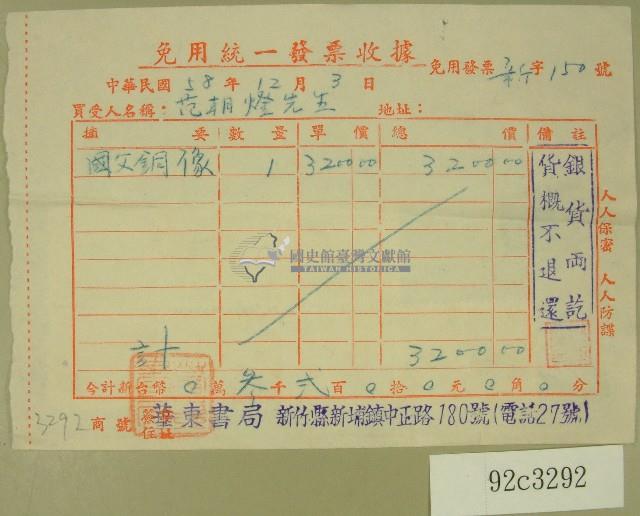 免用統一發票收據
免用發票新字150號
中華民國58年12月3日
買受人名稱：范朝燈先生 地址：
摘要 數量 單價 總價 備註
國父銅像 1 3200 00 3200 00
銀貨兩訖
貨概不退還
計 3200 00
今計新台幣0萬叁千弍百0拾0元0角0分
商號 華東書局 新竹縣新埔鎮中正路180號(電話27號)
人人保密 人人防諜
國史館臺灣文獻館
TAIWAN HISTORICA
3292
92c3292